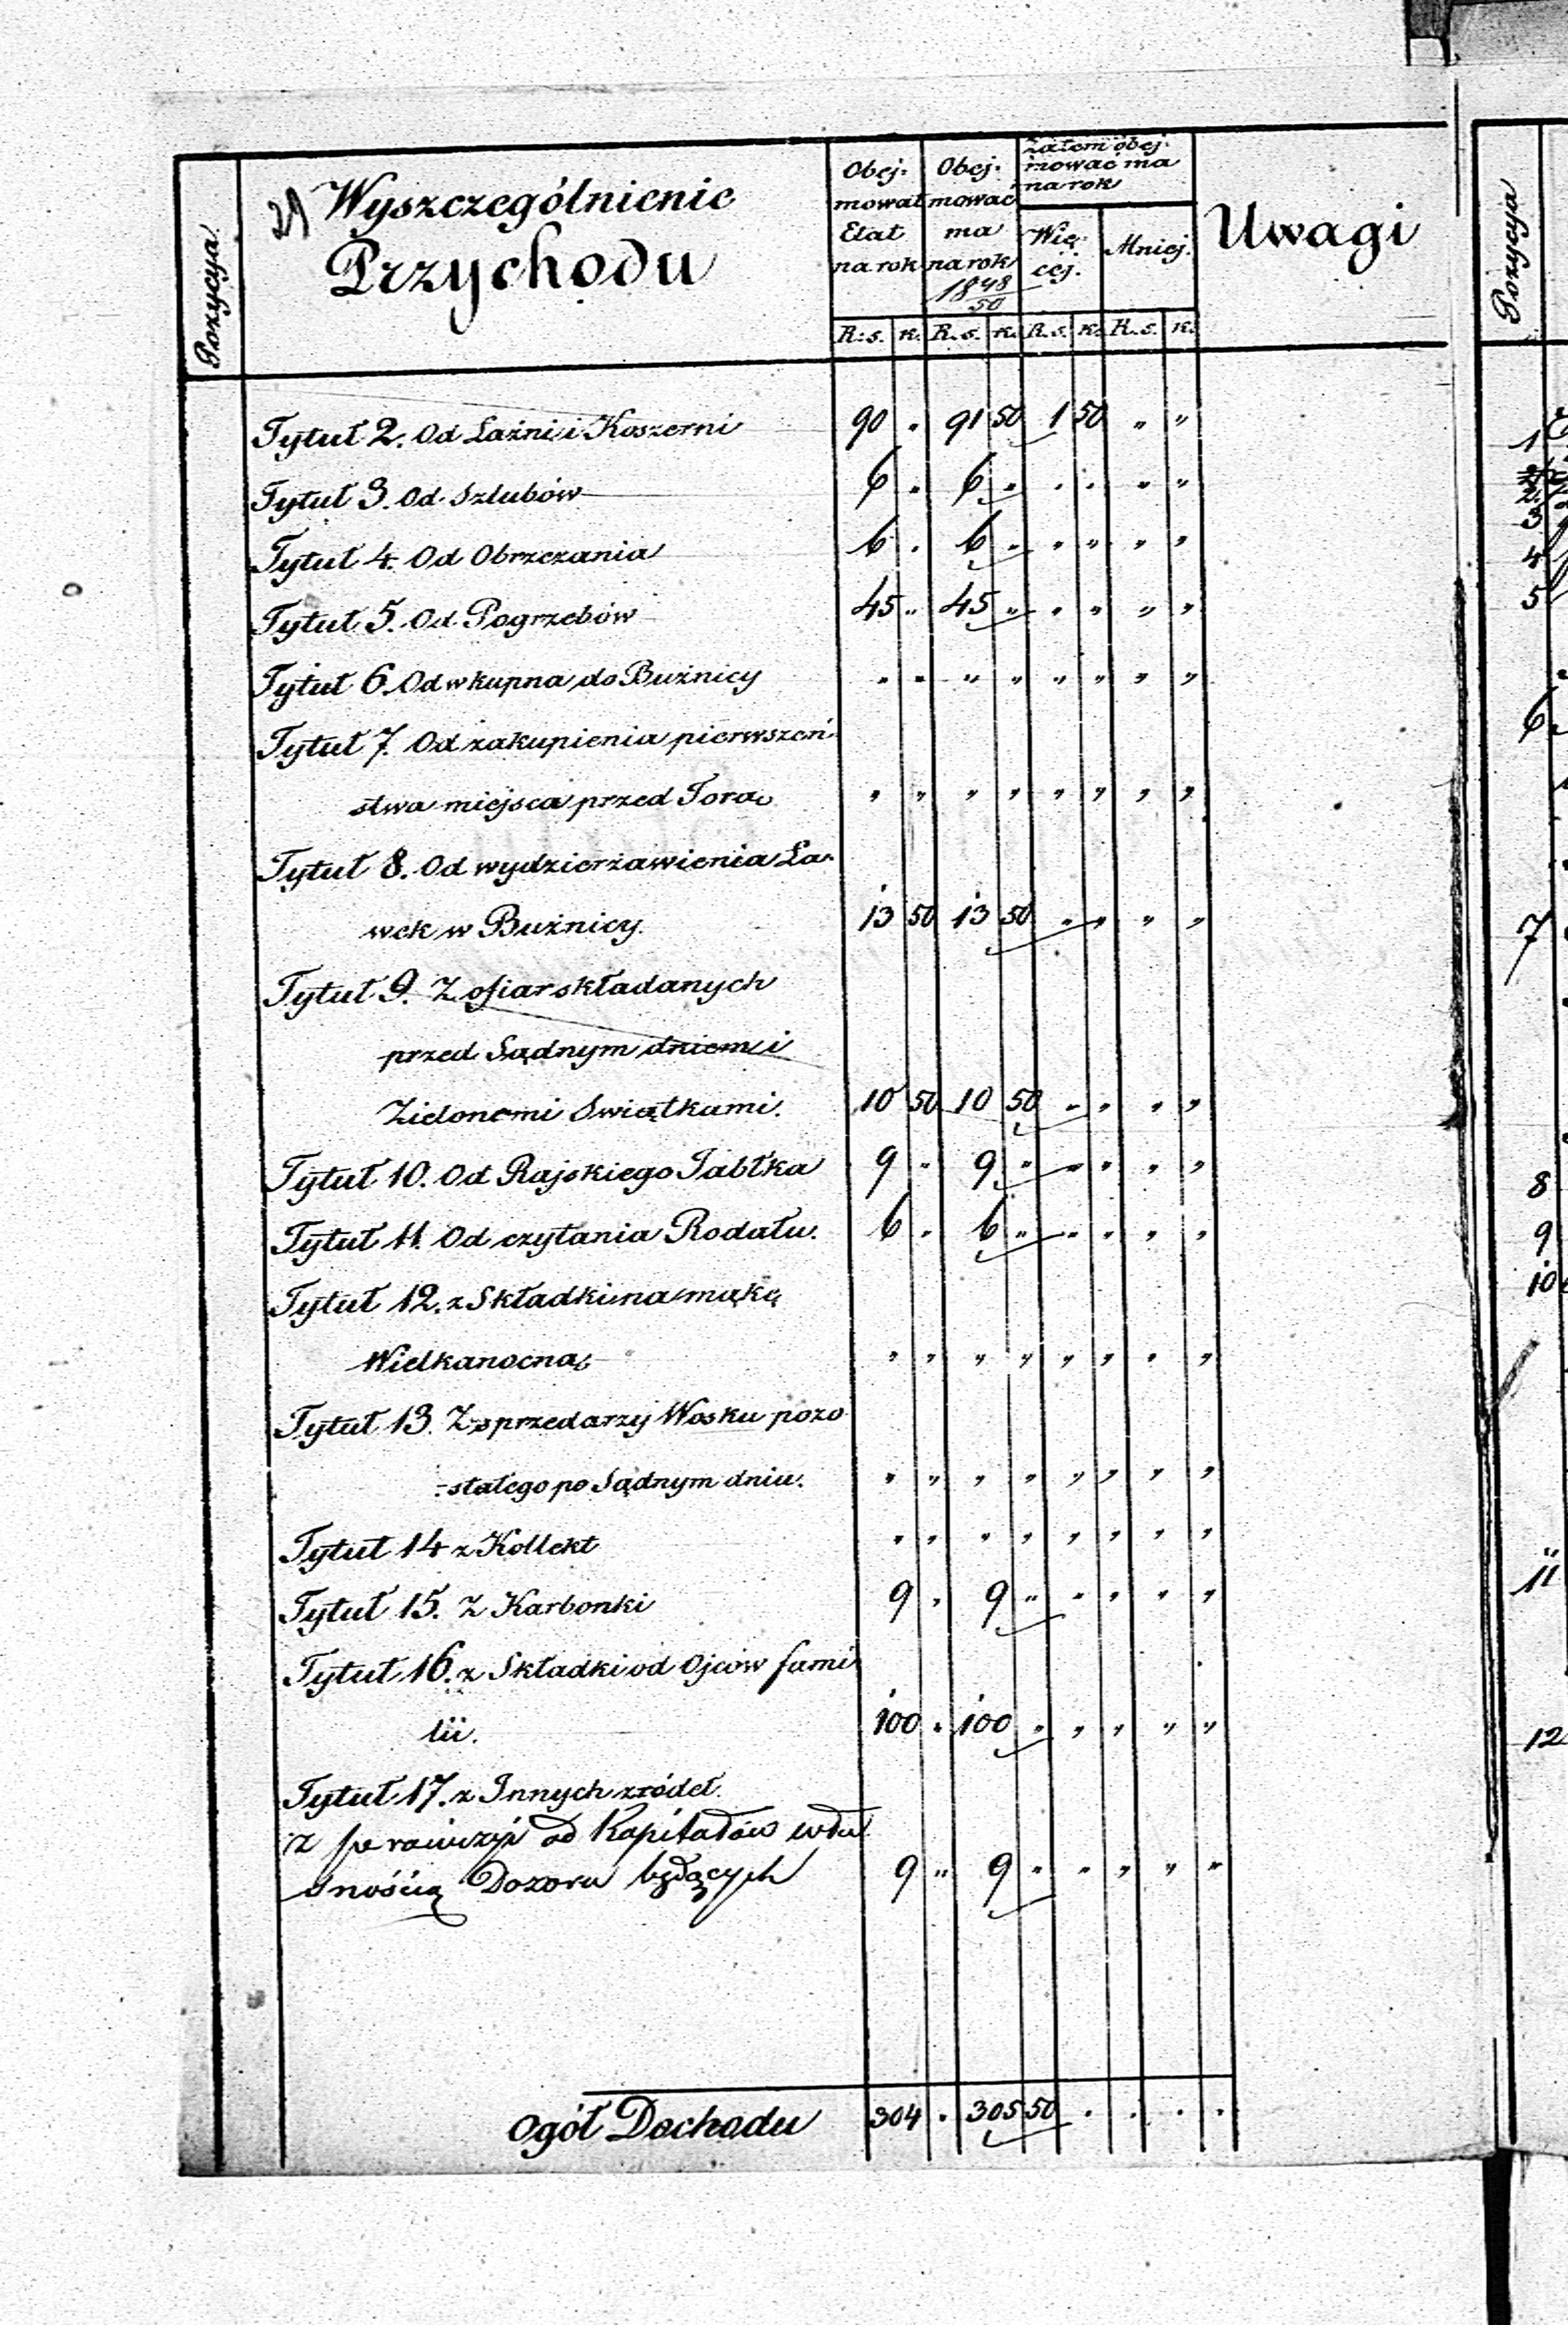 Pozycya
Wyszczególnienie
Przychodu
Obej-
mował
Etat
na rok
Obej-
mować
ma
na rok
1848/50
Zatem obej-
mować ma
na rok
Wię-
cej.
Mniej.
Uwagi
R:s. K. R.s. K. R.s. K. R.s. K.
Tytuł 2. Od Łaźni i Koszerni 90 " 91 50 1 50 " "
Tytuł 3. Od Szlubów 6 " 6 " " " " "
Tytuł 4. Od Obrzezania 6 " 6 " " " " "
Tytuł 5. Od Pogrzebów 45 " 45 " " " " "
Tytuł 6. Od wkupna do Bużnicy " " " " " " " "
Tytuł 7. Od zakupienia pierwszeń-
stwa miejsca przed Torą " " " " " " " "
Tytuł 8. Od wydzierżawienia Ła-
wek w Bużnicy. 13 50 13 50 " " " "
Tytuł 9. Z ofiar składanych
przed Sądnym dniem i
Zielonemi Swiątkami. 10 50 10 50 " " " "
Tytuł 10. Od Rajskiego Jabłka 9 " 9 " " " " "
Tytuł 11. Od czytania Rodału. 6 " 6 " " " " "
Tytuł 12. z Składki na mąkę
Wielkanocną " " " " " " " "
Tytuł 13. Z sprzedarzy Wosku pozo
-stałego po Sądnym dniu. " " " " " " " "
Tytuł 14 z Kollekt " " " " " " " "
Tytuł 15. Z Karbonki 9 " 9 " " " " "
Tytuł 16. z Składki od Ojców fami
lii. 100 " 100 " " " " "
Tytuł 17. z Innych zródeł.
z prowizji od Kapitałów wła
snością Dozoru będących 9 " 9 " " " " "
Ogół Dochodu 304 . 305 50 . . . .
Pozycya
1
2
3
4
5
6
7
8
9
10
11
12